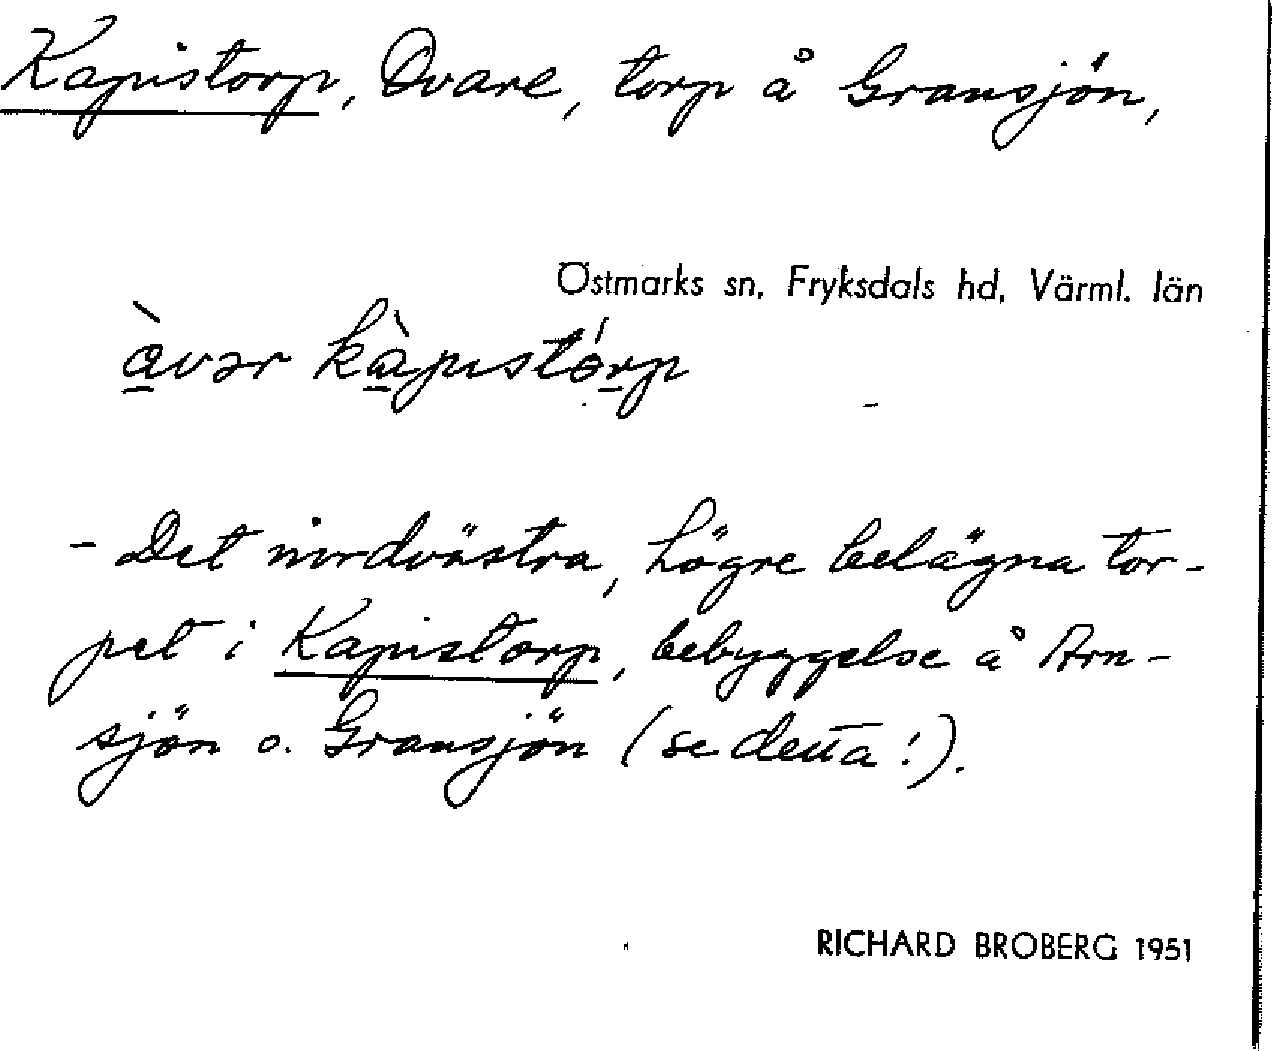 Kapistorp, Övare, torp å Gransjön,
Östmarks sn, Fryksdals hd, Värml. län
àvər kàpıstórp
- Det nordvästra, högre belägna tor-
pet i Kapistorp, bebyggelse å Arn-
sjön o. Gransjön (se detta!).
RICHARD BROBERG 1951